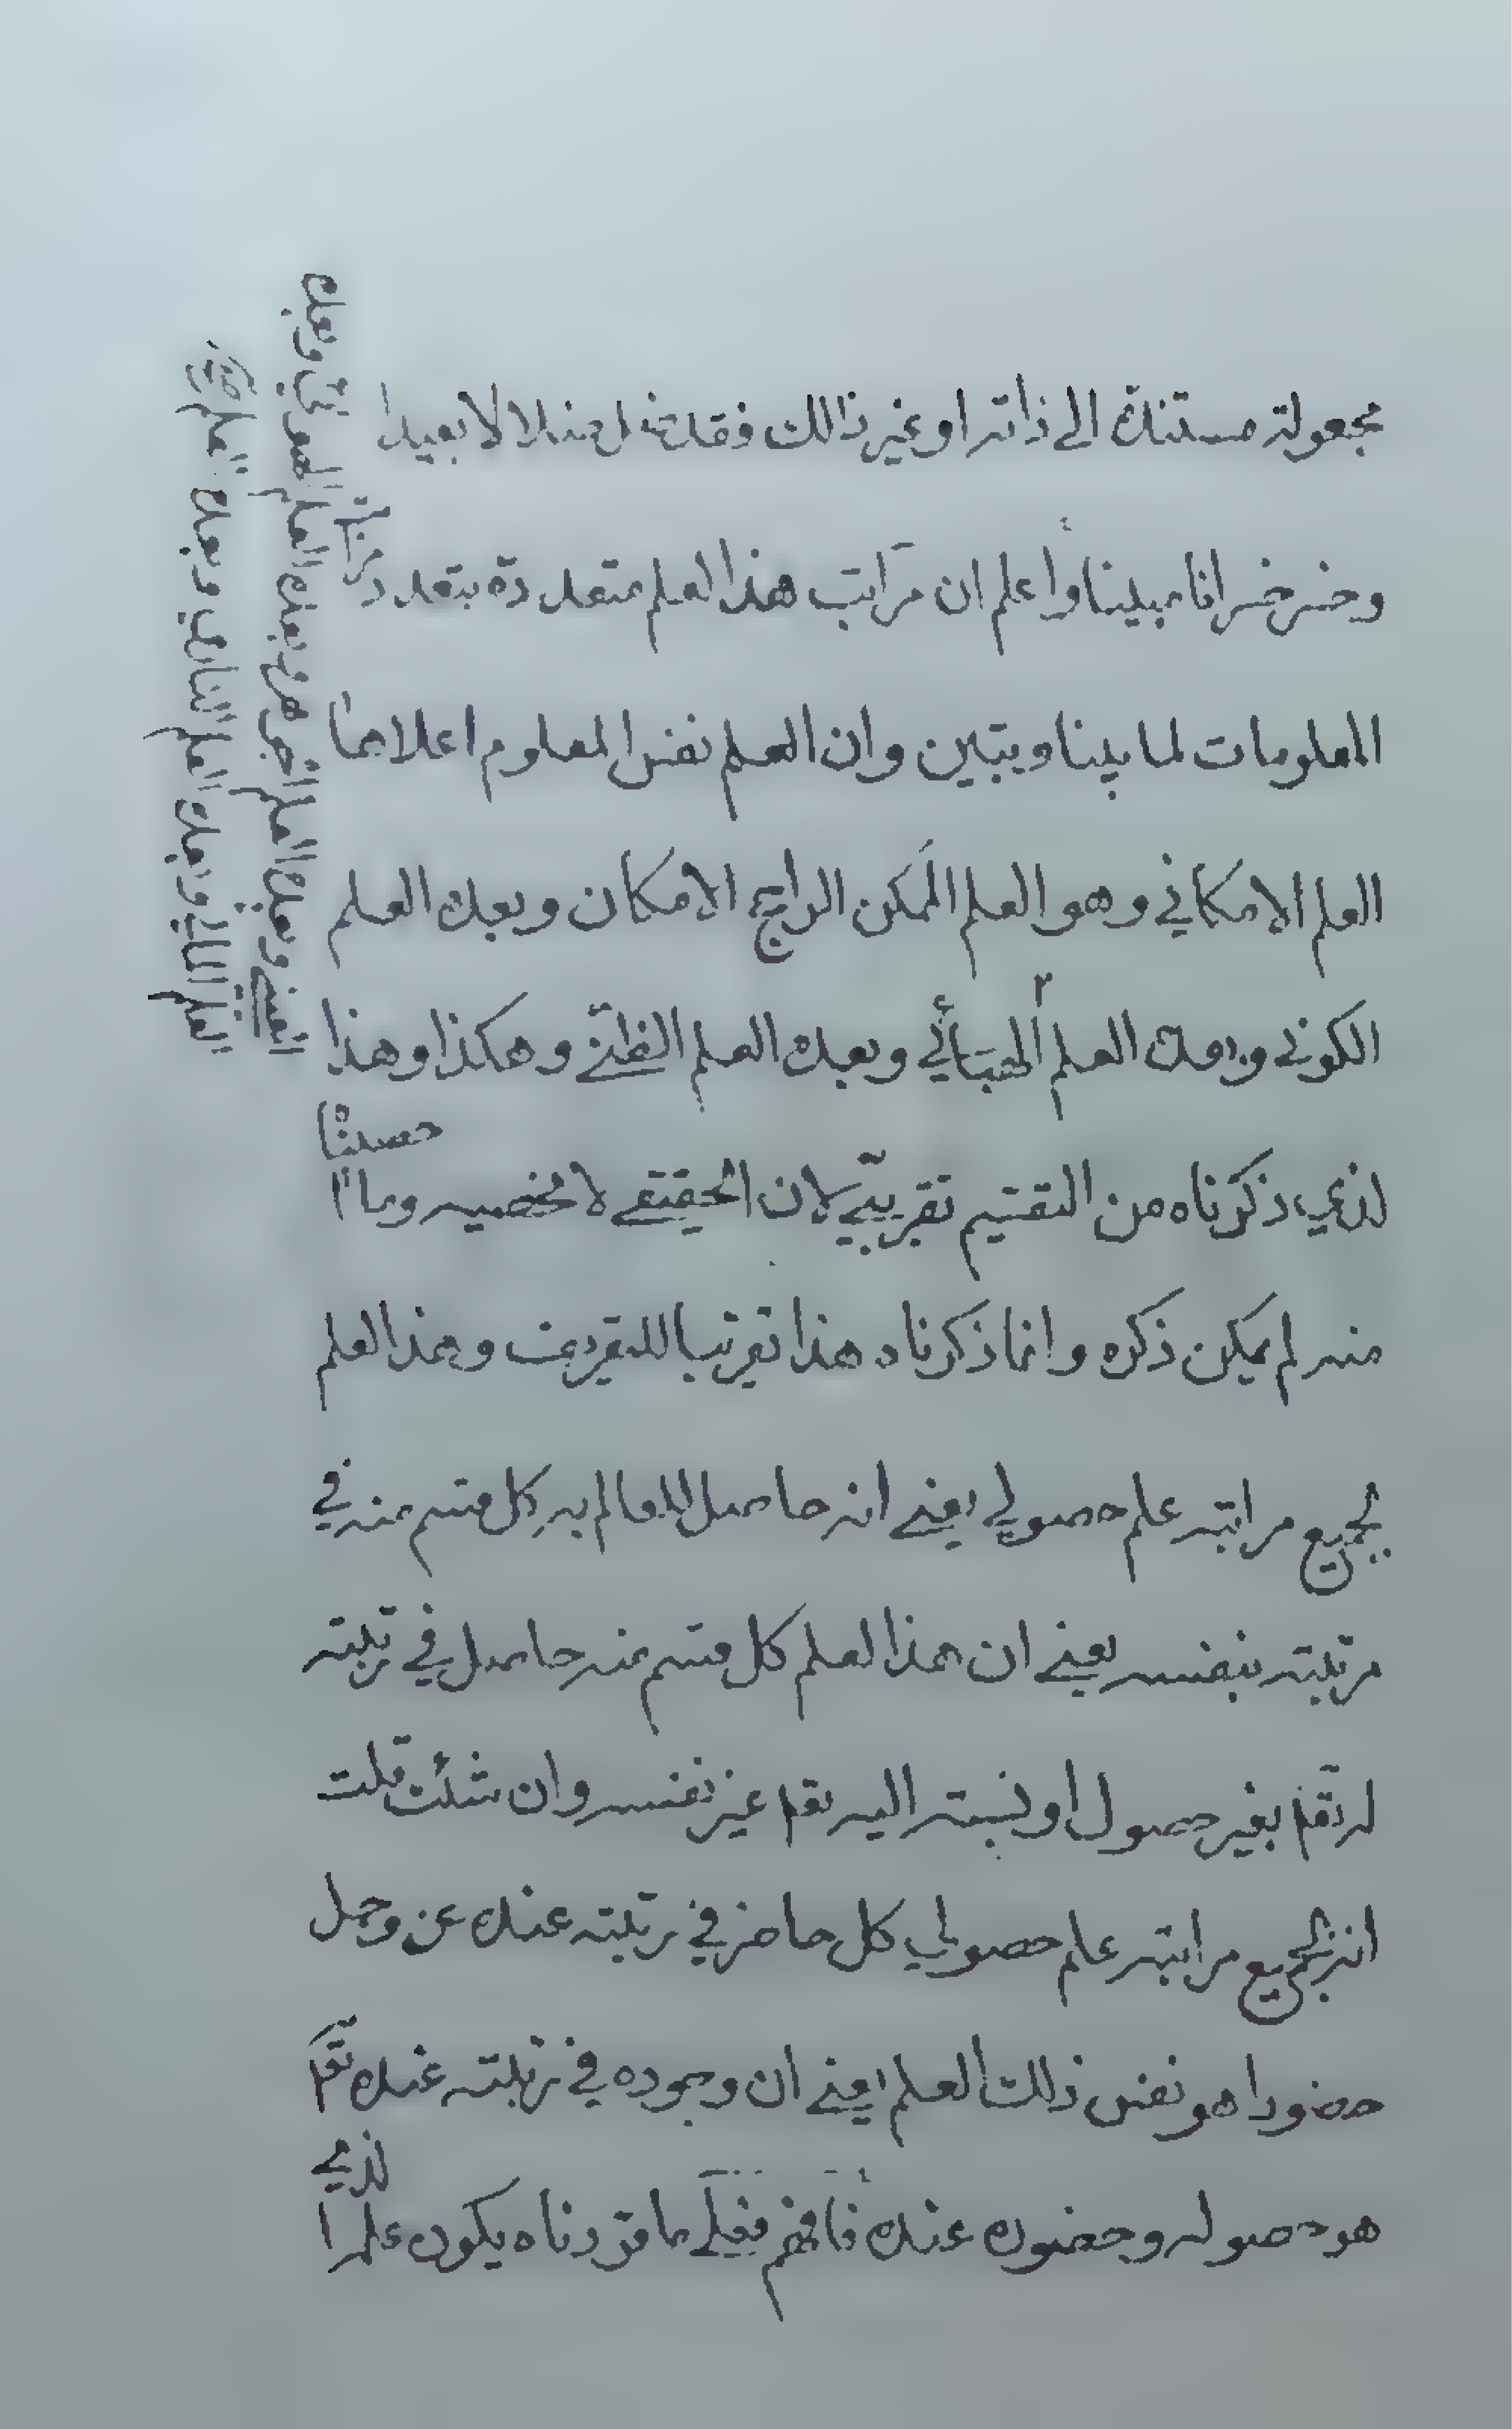 مجعولة مستندة الى ذاته او غير ذالك فقد ضل ضلالا بعيدا
وخسر خسرانا مبينا واعلم ان مراتب هذا العلم متعددة بتعدد مراتب
المعلومات لما بينا ويتبين وان العلم نفس المعلوم اعلاها
العلم الامكاني وهو العلم الممكن الراجح الامكان وبعده العلم
الكوني وبعده العلم الهبائي وبعده العلم الظلي وهكذا وهذا
الذي ذكرناه من التقسيم تقريبي لان الحقيقي لا نحصيه وما احصينا
منه لم يمكن ذكره وانما ذكرناه هذا تقريبا للتعريف وهذا العلم
بجميع مراتبه علم حصولي يعني انه حاصل للعالم به كل قسم منه في
مرتبته بنفسه يعني ان هذا العلم كل قسم منه حاصل في رتبته
له تعا بغير حصول او نسبته اليه تعا غير نفسه وان شئت قلت
انه بجميع مراتبه علم حصولي كل حاضر في رتبته عنده عز وجل
حضورا هو نفس ذلك العلم يعني ان وجوده في رتبته عنده تعا
هو حصوله وحضوره عنده فافهم فعلى ما قررناه يكون علمه الذي
وبعده العلم الجوهري وبعده العلم الهوائي وبعده
العلم المائي وبعده العلم الناري وبعده العلم